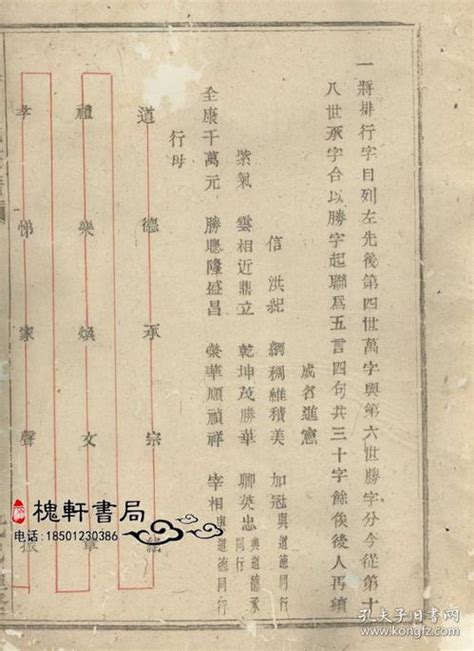 一將排行字目列左先後第四世萬字與第六世勝字分今從第十
八世承字合以勝字起聯爲五言四句共三十字餘俟後人再續
成名進憲
信 洪紀 綱稠維積美 加冠與道德同行
紫氣 雲相近鼎立 乾坤茂勝華 聊英忠與道德承同行
全康千萬元 勝聰隆盛昌 榮華順禎祥 宰相與道德同行
行母
道德承宗
禮樂煥文章
孝悌家聲振
槐軒書局
电话:18501230386
孔夫子旧书网
www.kongfz.com